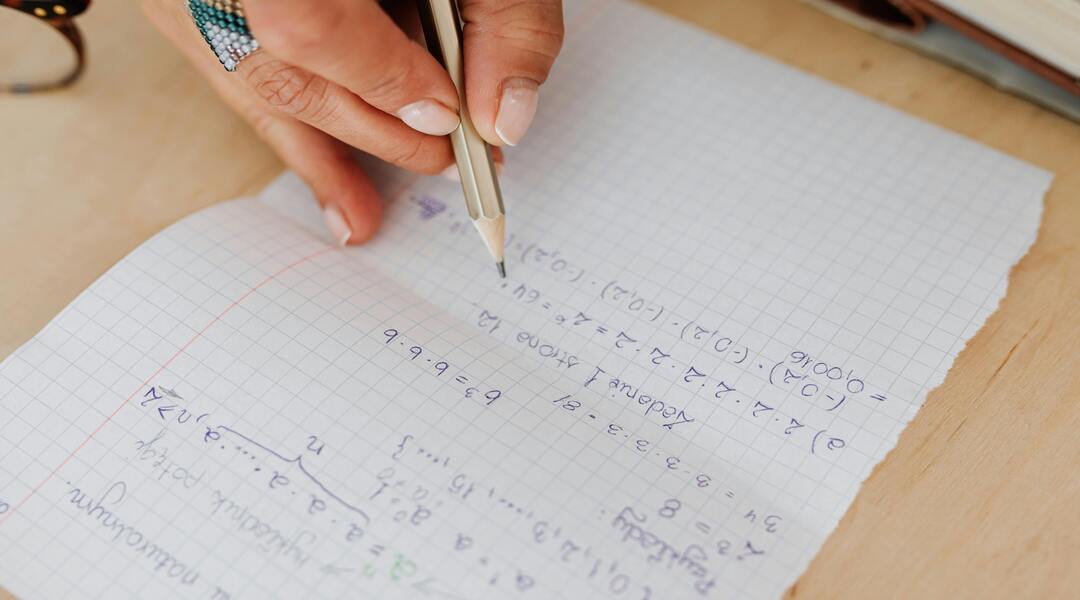 naturalnym.
wykładnik potęgi
aⁿ = a · a · a · ..... · a, n ≥ 2
n
a¹ = a a⁰ = 1
0, 1, 2, 3, ..., 15, ... }
Przykłady:
2³ = 8
3⁴ = 3 · 3 · 3 · 3 = 81
b³ = b · b · b
Zadanie 1 strona 12
a) 2 · 2 · 2 · 2 · 2 · 2 = 2⁶ = 64
(-0,2) · (-0,2) · (-0,2) · (-0,2)
= 0,0016